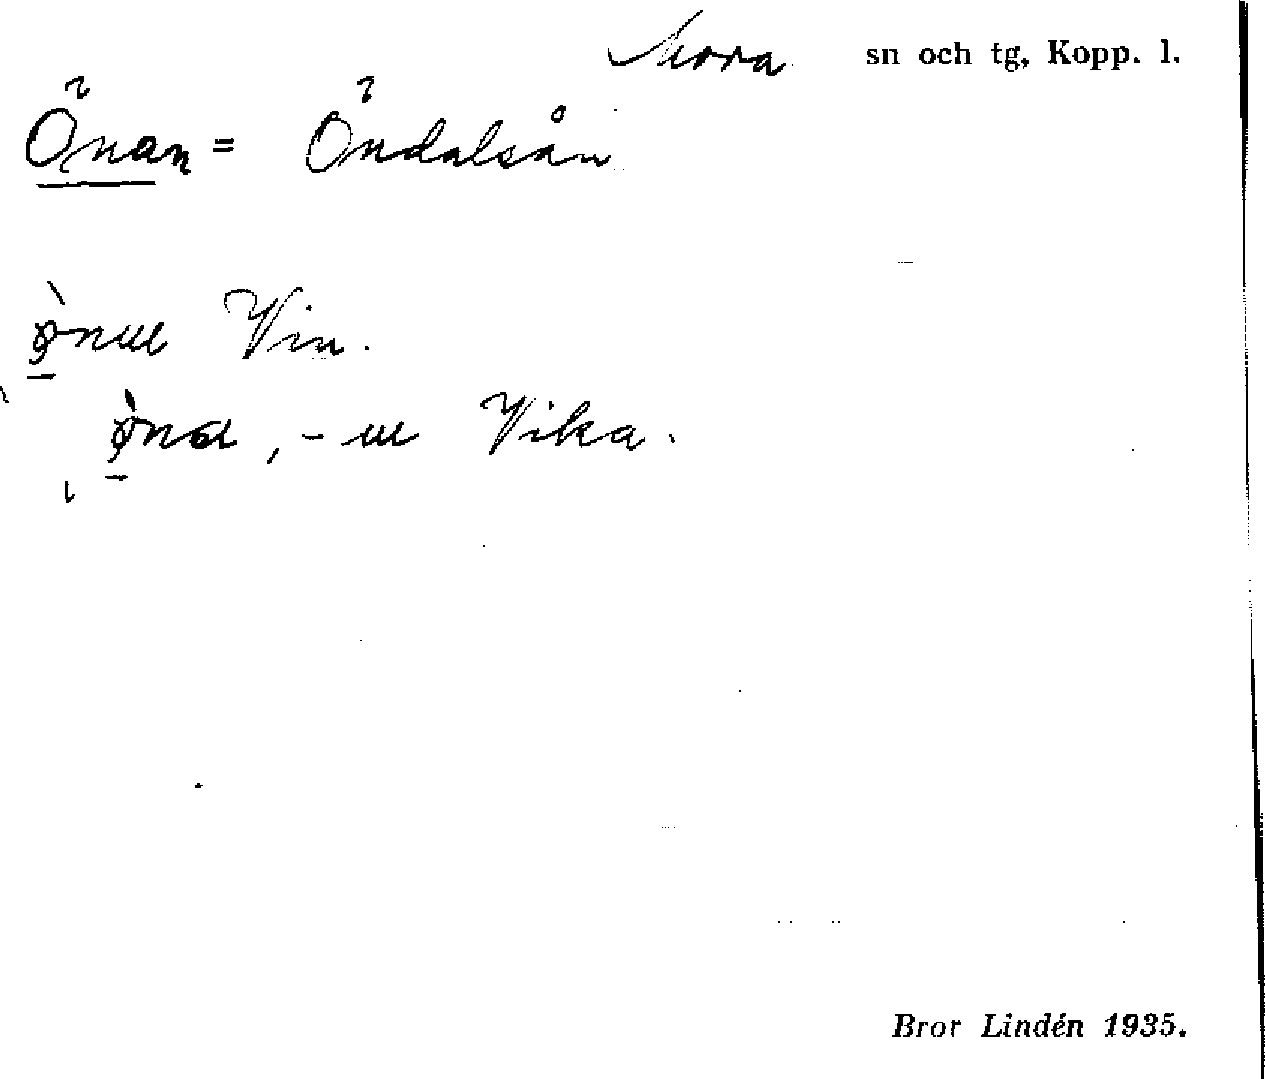 Mora sn och tg, Kopp. l.
Önan = Öndalsån
Vin.
, - Vika.
Bror Lindén 1935.